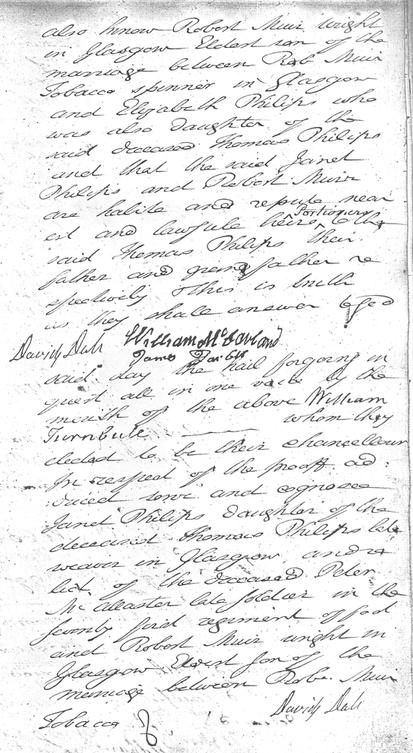 also know Robert Muir wright
in Glasgow Eldest son of the
marriage between Rob Muir
Tobacco spinner in Glasgow
and Elizabeth Philips who
was also daughter of the
said deceased Thomas Philips
and that the said Janet
Philips and Robert Muir
are habite and repute near
est and lawfule heirs Portioners to the
said Thomas Philips their
father and grandfather re
spectively & this is truth
as they shale answer to god
David Dale William McCarland
James
said day the hail forgoing in
quest all in one voice by the
mouth of the above William
Turnbull whom they
elected to be their chancellour
In respect of the prooff ad:
duced serve and cognosce
Janet Philips daughter of the
deceast Thomas Philips late
weaver in Glasgow and
lict of the deceased Peter
McAleaster late soldier in the
seventy first regiment of foot
and Robert Muir wright in
Glasgow Eldest son of the
marriage between Robt. Muir
David Dale
Tobacco